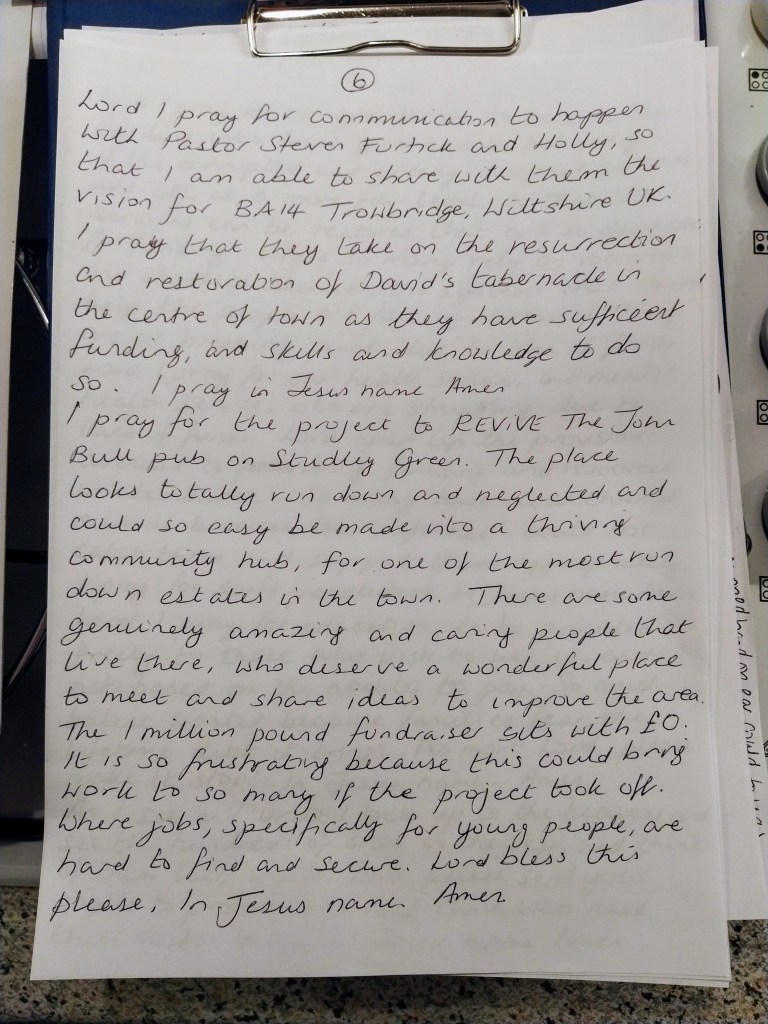 6
Lord I pray for communication to happen
with Pastor Steven Furtick and Holly, so
that I am able to share with them the
vision for BA14 Trowbridge, Wiltshire UK.
I pray that they take on the resurrection
and restoration of David's tabernacle in
the centre of town as they have sufficient
funding, and skills and knowledge to do
so. I pray in Jesus name Amen
I pray for the project to REViVE The John
Bull pub on Studley Green. The place
looks totally run down and neglected and
could so easy be made into a thriving
community hub, for one of the most run
down estates in the town. There are some
genuinely amazing and caring people that
live there, who deserve a wonderful place
to meet and share ideas to improve the area.
The 1 million pound fundraiser sits with £0.
It is so frustrating because this could bring
work to so many if the project took off.
Where jobs, specifically for young people, are
hard to find and secure. Lord bless this
please, In Jesus name. Amen